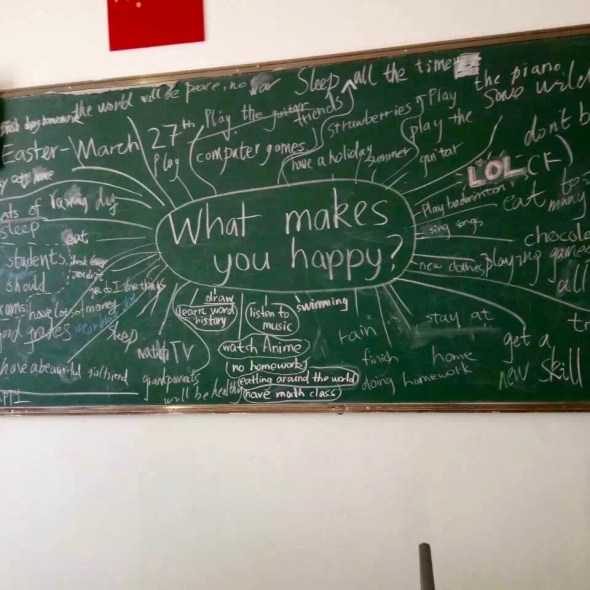 the world will be peace, no war
Sleep all the time
the piano
Save wild
Easter-March
27th
Play
Play the guitar
friends
computer games
have a holiday
strawberries
summer
Play
play the
guitar
don't b
LOL
CK)
play badminton
sing songs
eat to
many
chocole
new clothes
playing games
all
What makes
you happy?
ats of
sleep
eat
students
should
have lots of money
good grades
have a beautiful girlfriend
sleep
watch TV
grandparents
will be healthy
draw
learn word
history
listen to
music
swimming
watch Anime
no homeworks
eatting around the world
have math class
rain
finish
doing homework
stay at
home
get a
new skill